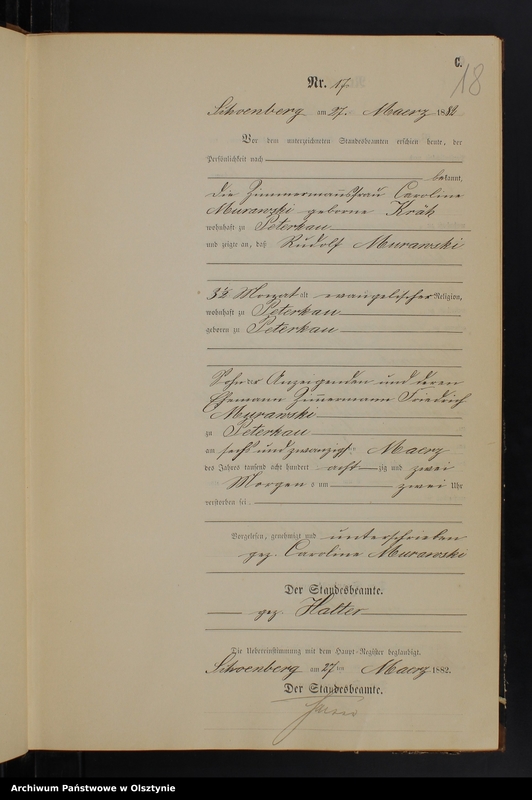 C.
18
Nr. 17.
Schoenberg am 27. Maerz 1882
Vor dem unterzeichneten Standesbeamten erschien heute, der
Persönlichkeit nach
bekannt,
die Zimmermannsfrau Caroline
Murawski geborne Kräh
wohnhaft zu Peterkau
und zeigte an, daß Rudolf Murawski
3½ Monat alt evangelischer Religion,
wohnhaft zu Peterkau
geboren zu Peterkau
Sohn der Anzeigenden und deren
Ehemann Zimmermann Friedrich
Murawski
zu Peterkau
am sechs und zwanzigsten Maerz
des Jahres tausend acht hundert acht zig und zwei
Morgens um zwei Uhr
verstorben sei
Vorgelesen, genehmigt und unterschrieben
gez. Caroline Murawski
Der Standesbeamte.
gez. Halter
Die Uebereinstimmung mit dem Haupt-Register beglaubigt.
Schoenberg am 27ten Maerz 1882.
Der Standesbeamte.
Archiwum Państwowe w Olsztynie